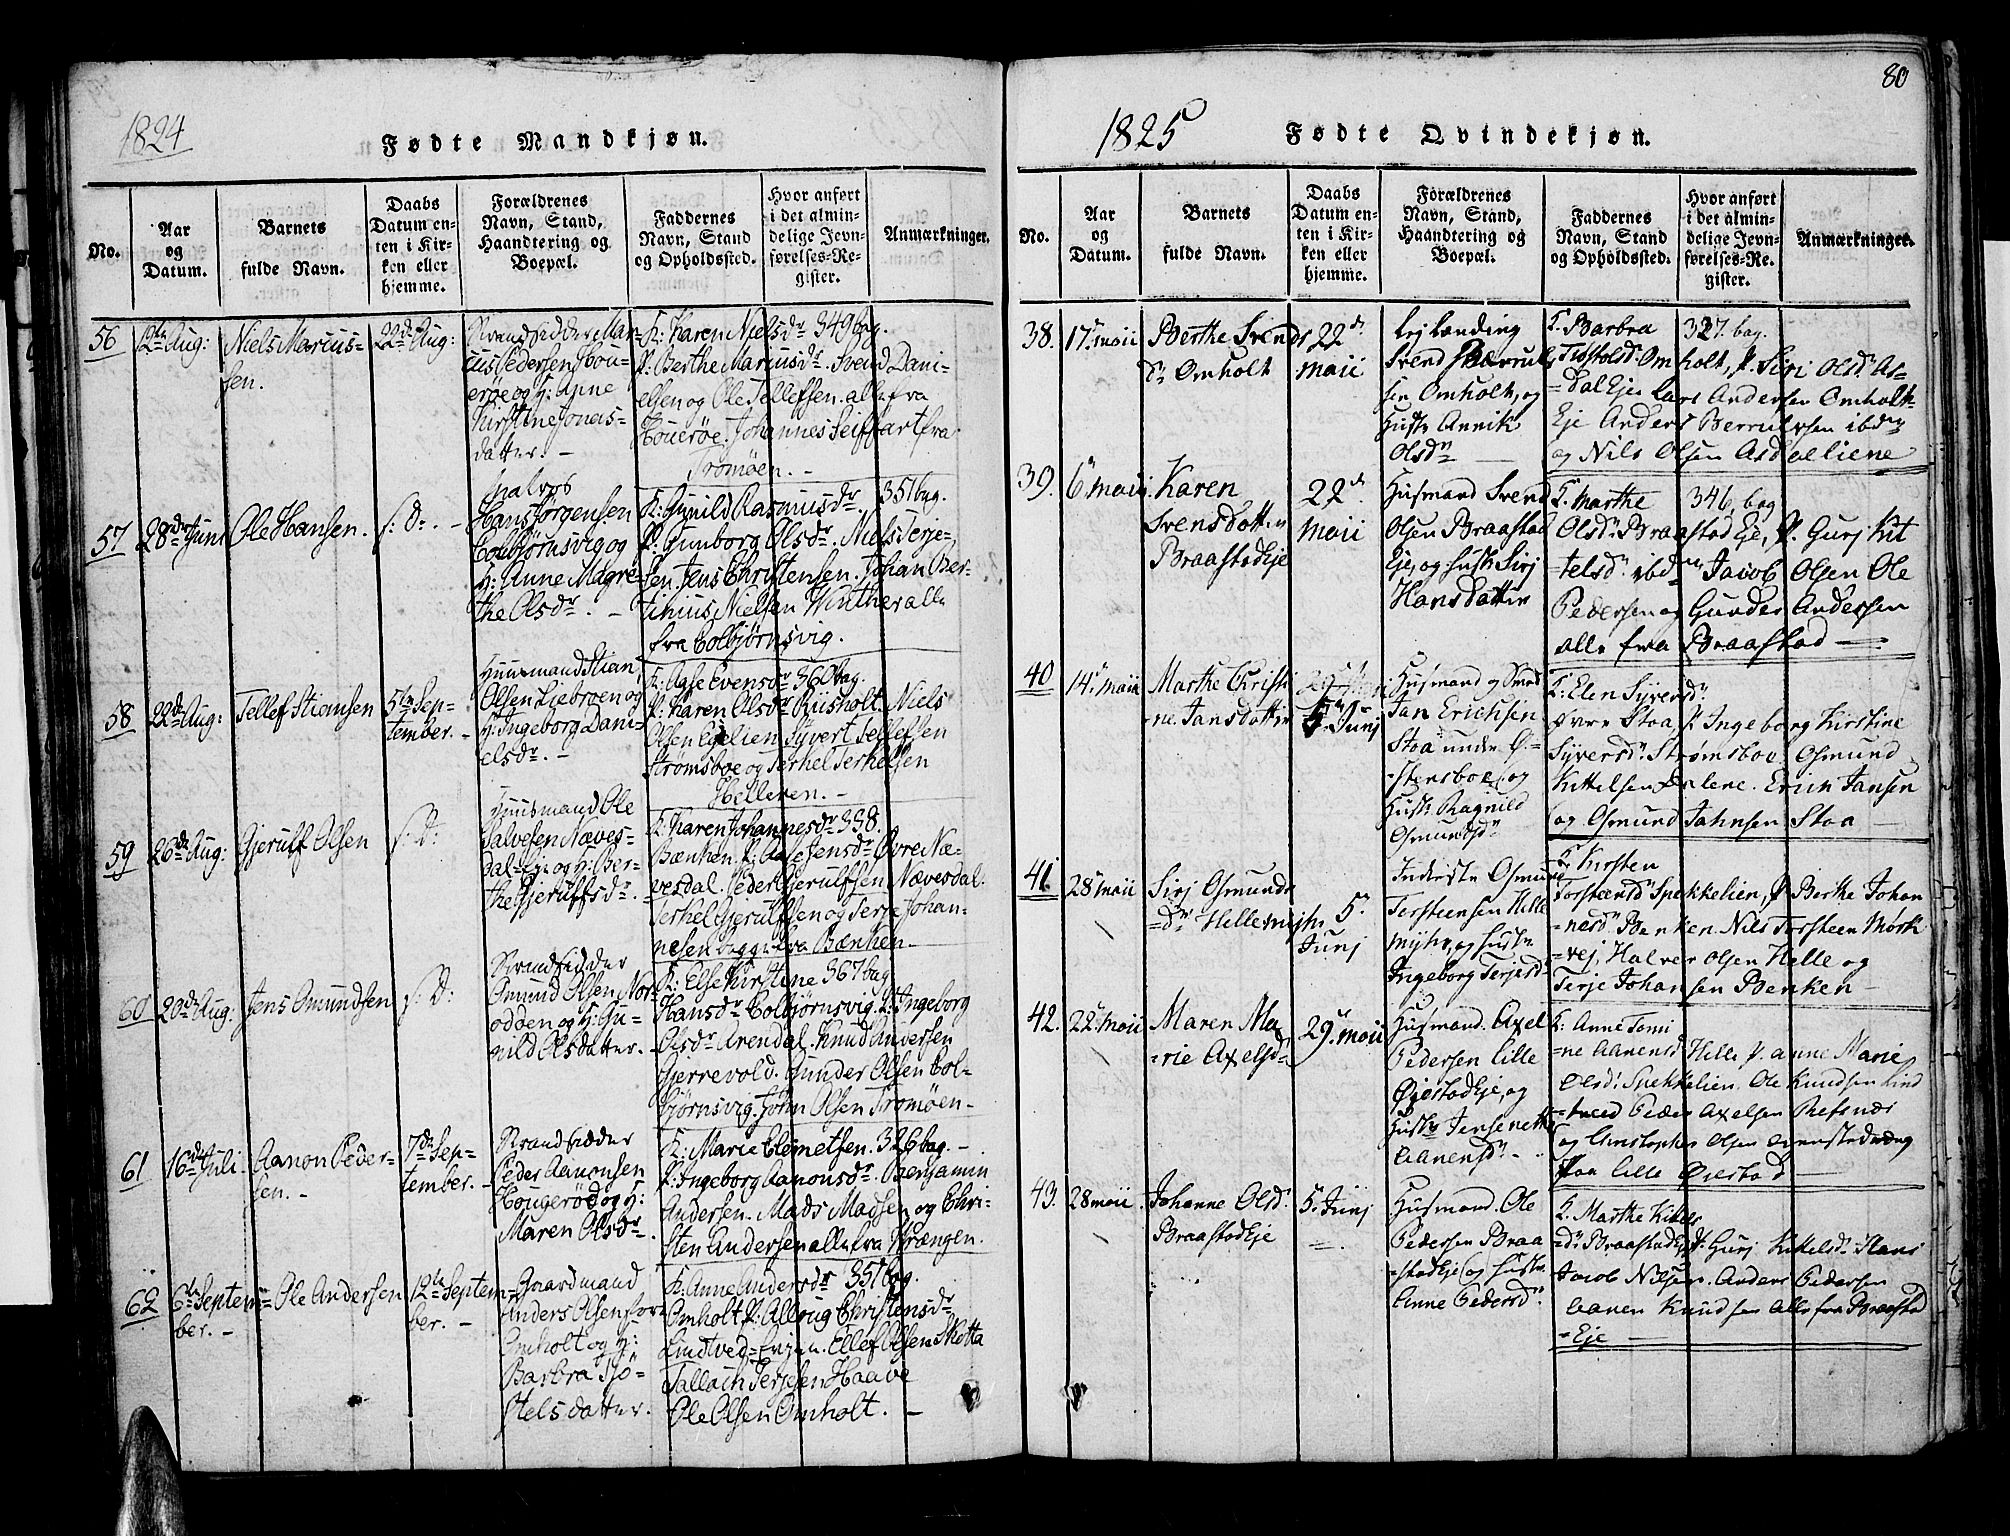 80
1824
Fødte Mandkjøn.
No.
Aar og Datum.
Barnets fulde Navn.
Daabs Datum enten i Kirken eller hjemme.
Forældrenes Navn, Stand, Haandtering og Boepæl.
Faddernes Navn, Stand og Opholdssted.
Hvor anført i det almindelige Jevnførelses-Register.
Anmærkninger.
56
12te Aug:
Niels Marcussen.
22de Aug:
Strandsidder Marcus Pedersen
og H: Anne
Kirstine Jonas-
datter. –
F: Karen Nielsdr 349 bag.
P: Berthe Mariusdr. Svend Dani-
elsen og Ole Tellefsen. alle fra
Houerøe. Johannes Seiffart fra
Tromøen. –
57
28de Juni
Ole Hansen.
s: D:. –
Hans Jørgensen
Colbjørnsvig og
H: Anne Magre-
the Olsdr. –
F: Gunild Rasmusdr. 351 bag.
P: Gunborg Olsdr. Niels Terje-
sen. Jens Christensen. Johan Ber-
tinius Nielsen Winther alle
fra Colbjørnsvig.
58
22de Aug:
Tellef Stiansen
5te Sep-
tember. –
Huusmand Stian
Olsen Liebroen og
H: Ingeborg Dani-
elsdr. –
F: Aase Evensdr 360 bag.
P: Karen Olsdr Riisholt. Niels
Olsen Egelien. Syvert Tellefsen
Strømsboe og Terkel Terkelsen
Helleren. –
59
26de Aug:
Gjerulf Olsen
s: D:
Huusmand Ole
Salvesen Næves-
dal-Eje og H: Ber-
the Gjerulfsdr. –
F: Karen Johannesdr 338.
Bænken. P: Aase Jensdr Øvre Næ-
vesdal. Peder Gjerulfsen Nævesdal.
Terkel Gjerulfsen og Terje Johan-
nesen begge fra Bænken –
60
20de Aug.
Jens Omundsen
s: D:
Strandsidder
Omund Olsen Nor-
odden og H: Gu-
nild Olsdatter. –
F: Else Kirstine 367 bag
Hansdr Colbjørnsvig. P: Ingeborg
Olsdr Arendal. Knud Andersen
Hjerrevold. Gunder Olsen Col-
bjørnsvig. John Olsen Tromøen –
61
16de Juli.
Aanon Peder-
sen. –
7de Sep-
tember. –
Strandsidder
Peder Aanonsen
Hougerød og H:
Maren Olsdr.
F: Marie Clemetsen. 326 bag. –
P: Ingeborg Aanonsdr. Benjamin
Andersen. Mads Madsen og Chri-
sten Andersen alle fra Krængen.
62
6te Septem-
ber. –
Ole Andersen
12te Septem-
ber. –
Gaardmand
Anders Olsen
Omholt og H:
Barbra Tjø-
stelsdatter.
F: Anne Andersdr 351 bag.
Omholt P: Alloug Christensdr
Lindtved-Enjen. Ellef Olsen Skotta
Tallach Terjesen Haave
Ole Olsen Omholt. –
1825
Fødte Qvindekjøn.
No.
Aar og Datum.
Barnets fulde Navn.
Daabs Datum enten i Kirken eller hjemme.
Forældrenes Navn, Stand, Haandtering og Boepæl.
Faddernes Navn, Stand og Opholdssted.
Hvor anført i det almindelige Jevnførelses-Register.
Anmærkninger.
38.
17. maii
Berthe Svends
Dr Omholt
22de
maii
Lejlænding
Svend
sen Omholt, og
Hustr Annik
Olsdr
F. Barbra 327. bag.
Tjøstolsdr Omholt, P. Siri Olsdr As-
=dal Eje Lars Andersen Omholt-
Eje Anders Berrulfsen ibdm
og Nils Olsen Asdaliene
39.
6 maii.
Karen
Svensdatter
Braastad Eje
22de
maii
Husmand Svend
Olsen Braastad
Eje, og Hustr Sirj
Hansdatter
F. Marthe 346, bag
Olsdr Braastad Eje, P. Gurj Kit
telsdr ibdm Jacob Olsen Ole
Pedersen og Gunder Andersen
alle fra Braastad –
40
14 maii
Marthe Christi
-ne Jansdatter
5 Junj
Husmand og Smed
Jan Erichsen
Stoa under Ø-
-stensboe, og
Hustr Ragnild
Osmundsdr
F: Elen Syversdr
Stoa, P Ingeborg Kirstine
Syversdr Strømsboe, Osmund
Kittelsen Dalene. Erich Jansen
og Osmund Jahnsen Stoa –
41.
28 maii
Sirj Osmunds
=dr Hellemyhr
5.
Junj
Inderste Osmund
Torsteensen Helle
myhr, og Hustr
Ingeborg Terjesdr
F. Kirsten
Torsteensdr Spekkelien, P Berthe Johan
nesdr Benken Nils Torsteen Mørk
-vej, Halvor Olsen Helle og
Terje Johansen Benken –
42.
22. maii
Maren Ma
-rie Axelsd-
29. maii
Husmand. Axel
Pedersen Lille
Øjestad Eje, og
Hustr Jensenethe
Aanensdr –
F: Anne Tomi
ne Aanensd Helle P. Anne Marie
Olsdr Spekkelien. Ole Knudsen Lind
tveed Peder Axelsen Refsnæs
og Christopher Olsen
paa Lille Øiestad
43.
28 maii.
Johanne Olsd.
Braastad Eje
5. Junj
Husmand. Ole
Pedersen Braa
-stad Eje, og Hustr
Anne Pedersdr
F. Marthe Kittels
=dr Braastad Eje P: Gurj Kittelsdr Hans
Jacob Nilsen. Anders Pedersen
Aanen Knudsen alle fra Braastad
=Eje –